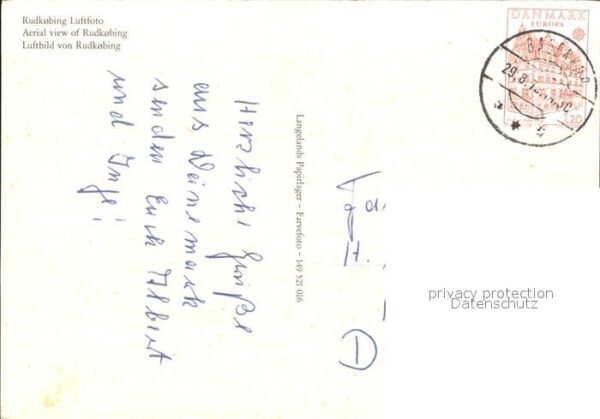 Rudkøbing Luftfoto
Aerial view of Rudkøbing
Luftbild von Rudkøbing
Herzliche Grüße
aus Dänemark
senden Euch Albert
und Inge!
Langelands Papirlager – Farvefoto – 149 521 016
DANMARK
EUROPA
120
29.8.
Fa.
H.
privacy protection
Datenschutz